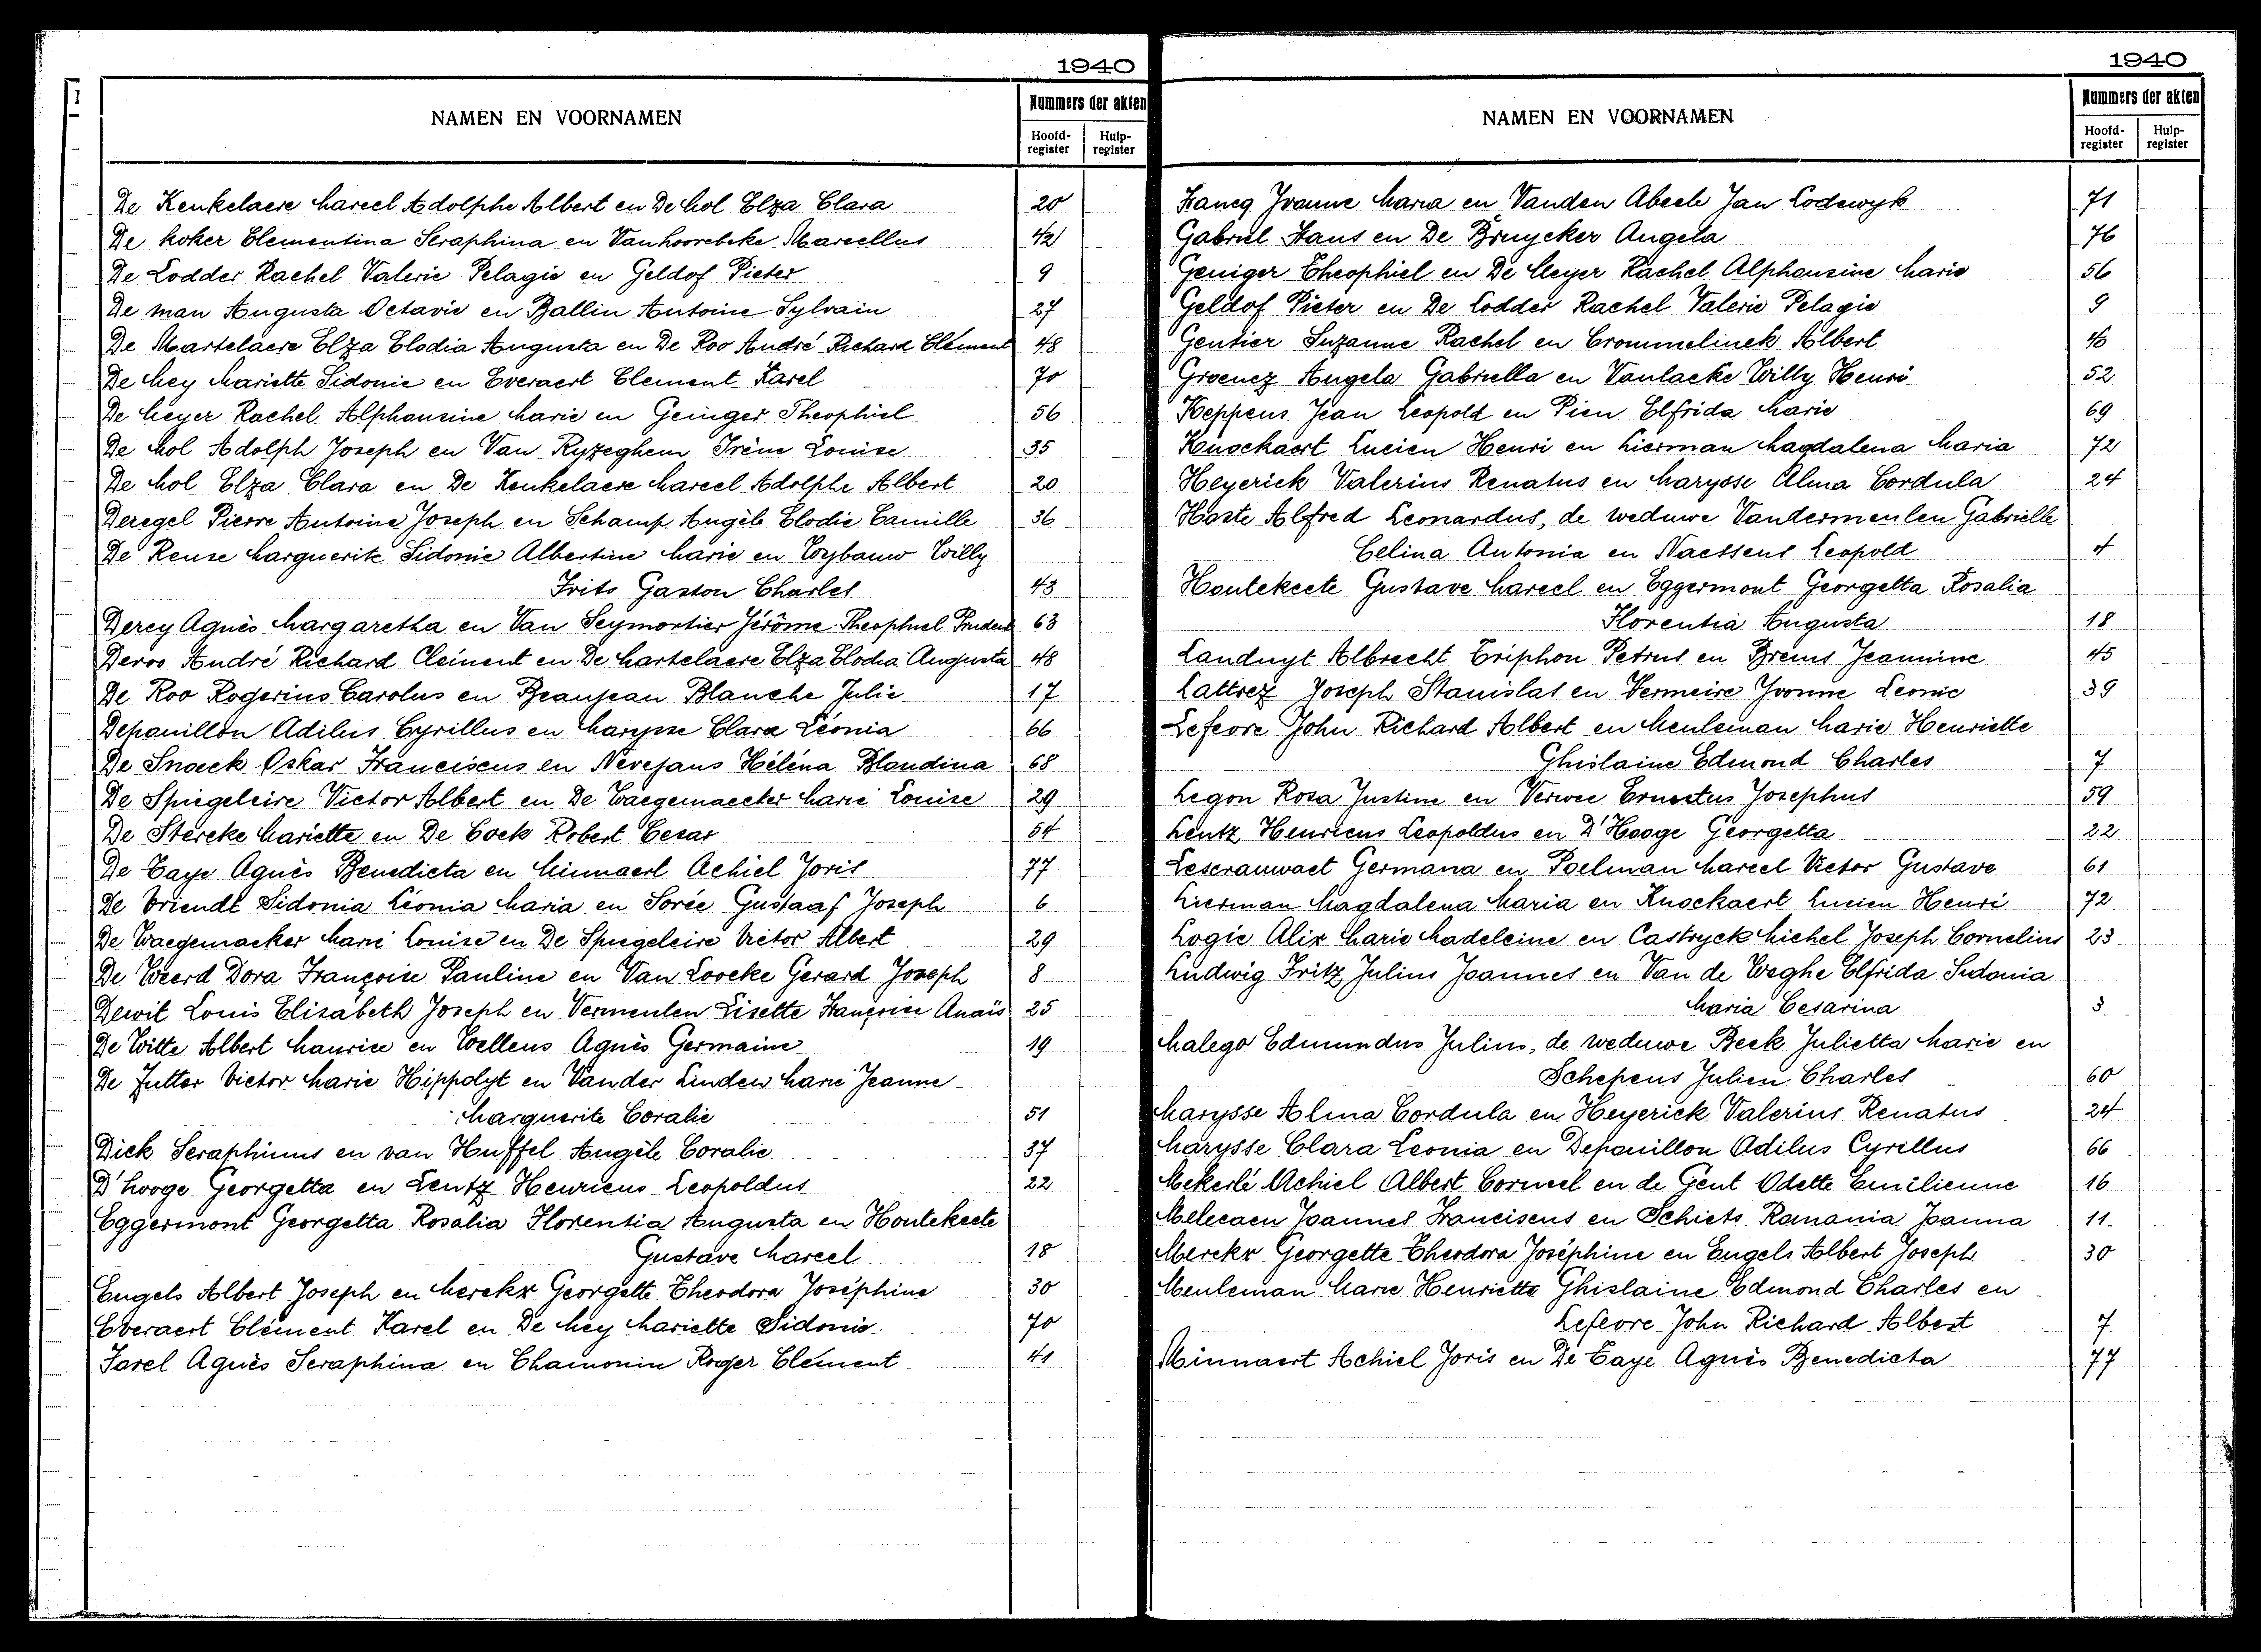 1940
NAMEN EN VOORNAMEN
Nummers der akten
Hoofd-register
Hulp-register
De Keukelaere Marcel Adolphe Albert en De Mol Elza Clara 20
De Koker Clementina Seraphina en Vanhoorebeke Marcellus 42
De Lodder Rachel Valerie Pelagie en Geldof Pieter 9
De Man Augusta Octavie en Ballin Antoine Sylvain 27
De Martelaere Elza Elodia Augusta en De Roo André Richard Clément 48
De Mey Mariette Sidonie en Everaert Clement Karel 70
De Meyer Rachel Alphonsine Marie en Geiniger Theophiel 56
De Mol Adolph Joseph en Van Ryzeghem Irène Louise 35
De Mol Elza Clara en De Keukelaere Marcel Adolphe Albert 20
Deregel Pierre Antoine Joseph en Schamp Angèle Elodie Camille 36
De Reuse Marguerite Sidonie Albertine Marie en Wybauw Willy
Frits Gaston Charles 43
Derey Agnès Margaretha en Van Seymortier Jérôme Theophiel Prudent 63
Deroo André Richard Clément en De Martelaere Elza Elodia Augusta 48
De Roo Rogerius Carolus en Beaujean Blanche Julie 17
Depauillon Adilus Cyrillus en Marysse Clara Léonia 66
De Snoeck Oskar Franciscus en Nevejans Héléna Blandina 68
De Spiegeleire Victor Albert en De Waegemaecker Marie Louise 29
De Stercke Mariette en De Cock Robert Cesar 54
De Taye Agnès Benedicta en Minnaert Achiel Joris 77
De Vriendt Sidonia Léonia Maria en Sorée Gustaaf Joseph 6
De Waegemaeker Marie Louise en De Spiegeleire Victor Albert 29
De Weerd Dora Françoise Pauline en Van Loocke Gerard Joseph 8
Dewit Louis Elisabeth Joseph en Vermeulen Lisette Françoise Anaïs 25
De Witte Albert Maurice en Wellens Agnès Germaine 19
De Zutter Victor Marie Hippolyt en Vander Linden Marie Jeanne
Marguerite Coralie 51
Dick Seraphinus en van Huffel Angèle Coralie 37
D'hooge Georgetta en Lentz Henricus Leopoldus 22
Eggermont Georgetta Rosalia Florentia Augusta en Houtekeete
Gustave Marcel 18
Engels Albert Joseph en Merckx Georgette Theodora Joséphine 30
Everaert Clément Karel en De Mey Mariette Sidonie 70
Farel Agnès Seraphina en Chamonin Roger Clément 41
1940
NAMEN EN VOORNAMEN
Nummers der akten
Hoofd-register
Hulp-register
Francq Yvonne Maria en Vanden Abeele Jan Lodewyk 71
Gabriel Frans en De Bruycker Angela 76
Geniger Theophiel en De Meyer Rachel Alphonsine Marie 56
Geldof Pieter en De Lodder Rachel Valerie Pelagie 9
Gentier Suzanne Rachel en Crommelinck Albert 46
Groenez Angela Gabriella en Vanlacke Willy Henri 52
Keppens Jean Leopold en Pien Elfrida Marie 69
Knockaert Lucien Henri en Lierman Magdalena Maria 72
Heyerick Valerius Renatus en Marysse Alma Cordula 24
Hoste Alfred Leonardus, de weduwe Vandermeulen Gabrielle
Celina Antonia en Naessens Leopold 4
Houtekeete Gustave Marcel en Eggermont Georgetta Rosalia
Florentia Augusta 18
Landuyt Albrecht Triphon Petrus en Brems Jeannine 45
Lattrez Joseph Stanislas en Vermeire Yvonne Leonie 39
Lefevre John Richard Albert en Meuleman Marie Henriette
Ghislaine Edmond Charles 7
Legon Rosa Justine en Verwee Ernestus Josephus 59
Lentz Henricus Leopoldus en D'Hooge Georgetta 22
Lescrauwaet Germana en Poelman Marcel Victor Gustave 61
Lierman Magdalena Maria en Knockaert Lucien Henri 72
Logie Alix Marie Madeleine en Castryck Michel Joseph Cornelius 23
Ludwig Fritz Julius Joannes en Van de Weghe Elfrida Sidonia
Maria Cesarina 3
Malego Edmundus Julius, de weduwe Beek Julietta Marie en
Schepens Julien Charles 60
Marysse Alma Cordula en Heyerick Valerius Renatus 24
Marysse Clara Leonia en Depauillon Adilus Cyrillus 66
Mekerlé Achiel Albert Corneel en de Gent Odette Emilienne 16
Melecaen Joannes Franciscus en Schiets Ramania Joanna 11
Merckx Georgette Theodora Joséphine en Engels Albert Joseph 30
Meuleman Marie Henriette Ghislaine Edmond Charles en
Lefevre John Richard Albert 7
Minnaert Achiel Joris en De Taye Agnès Benedicta 77